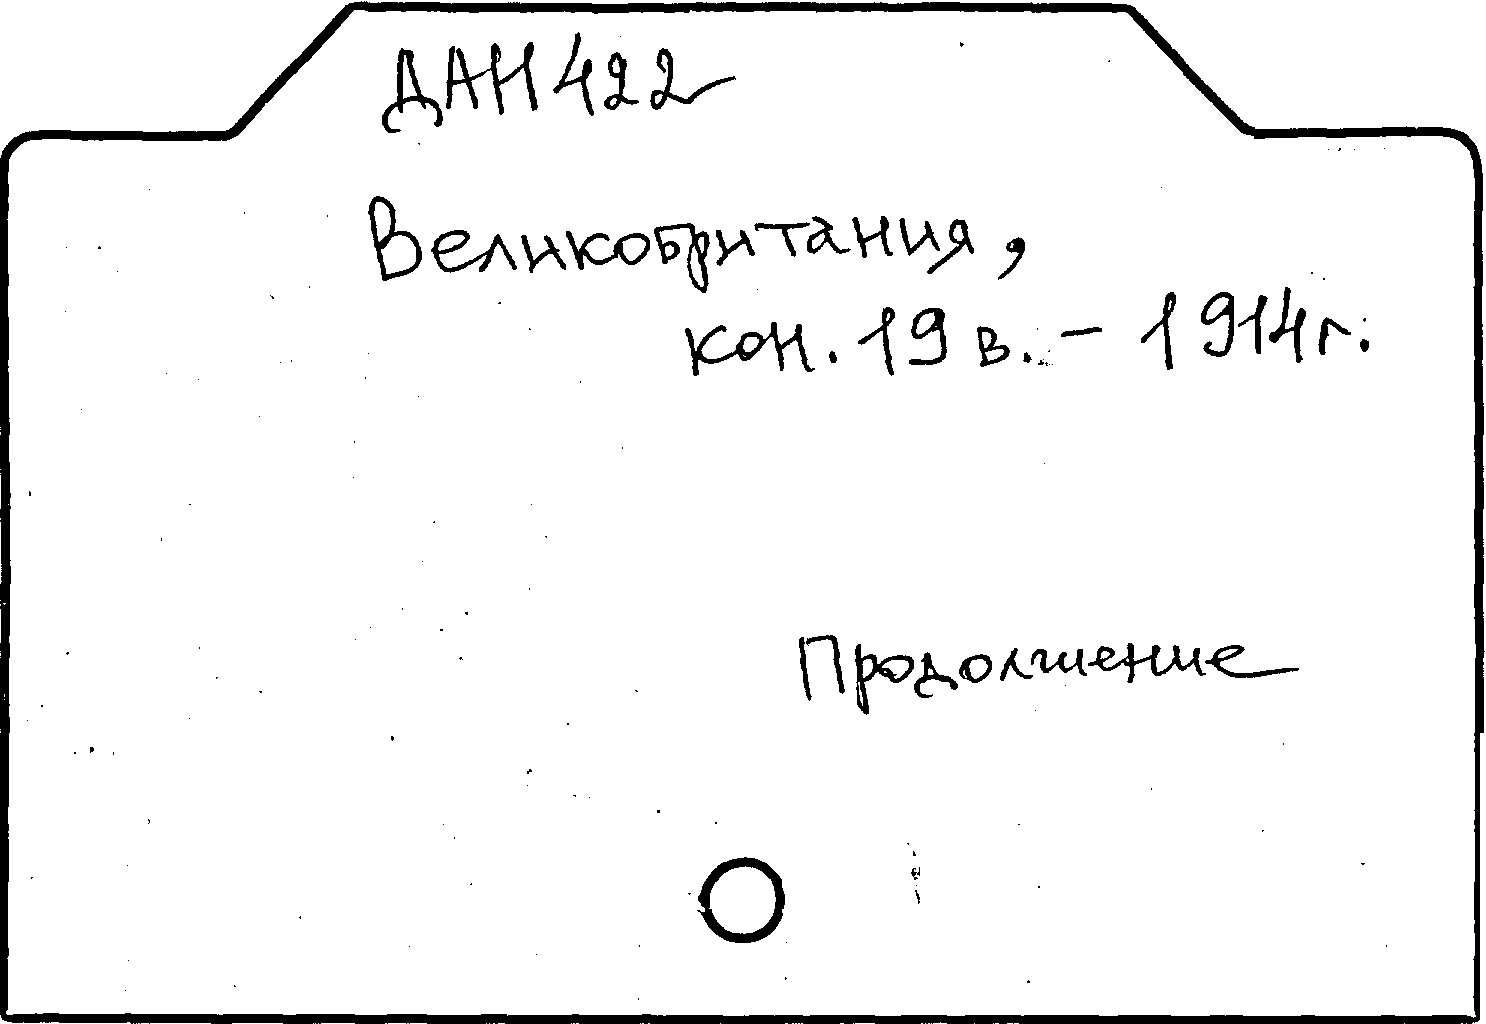 ДАН 422
Великобритания,
кон. 19 в. – 1914 г.
Продолжение